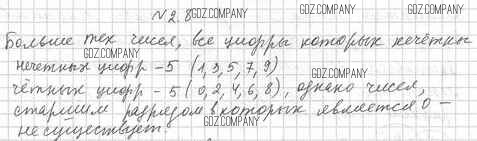 №2.8 GDZ.COMPANY
GDZ.COMPANY GDZ.COMPANY
Больше тех чисел, все цифры которых нечётны
GDZ.COMPANY
нечетных цифр - 5 (1, 3, 5, 7, 9)
чётных цифр - 5 (0, 2, 4, 6, 8), однако чисел,
GDZ.COMPANY GDZ.COMPANY
старшим разрядом в которых является 0 -
GDZ.COMPANY
не существует.